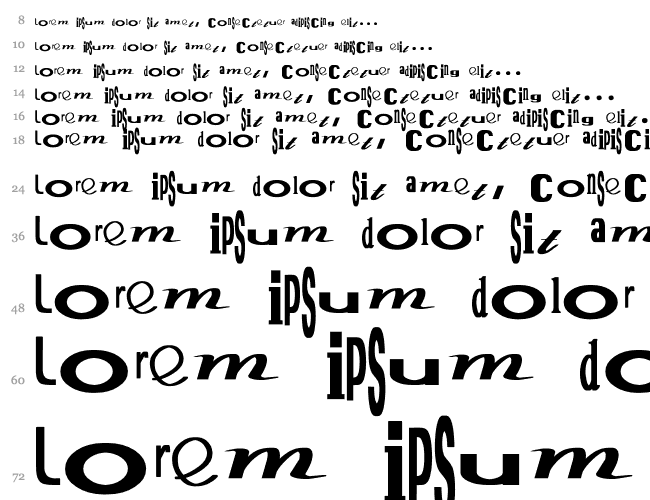 8 lorem ipsum dolor sit amet, ConseCtetuer adipisCing elit...
10 lorem ipsum dolor sit amet, ConseCtetuer adipisCing elit...
12 lorem ipsum dolor sit amet, ConseCtetuer adipisCing elit...
14 lorem ipsum dolor sit amet, ConseCtetuer adipisCing elit...
16 lorem ipsum dolor sit amet, ConseCtetuer adipisCing elit.
18 lorem ipsum dolor sit amet, ConseCtetuer adipisCi
24 lorem ipsum dolor sit amet, ConseC
36 lorem ipsum dolor sit am
48 lorem ipsum dolor
60 lorem ipsum do
72 lorem ipsum